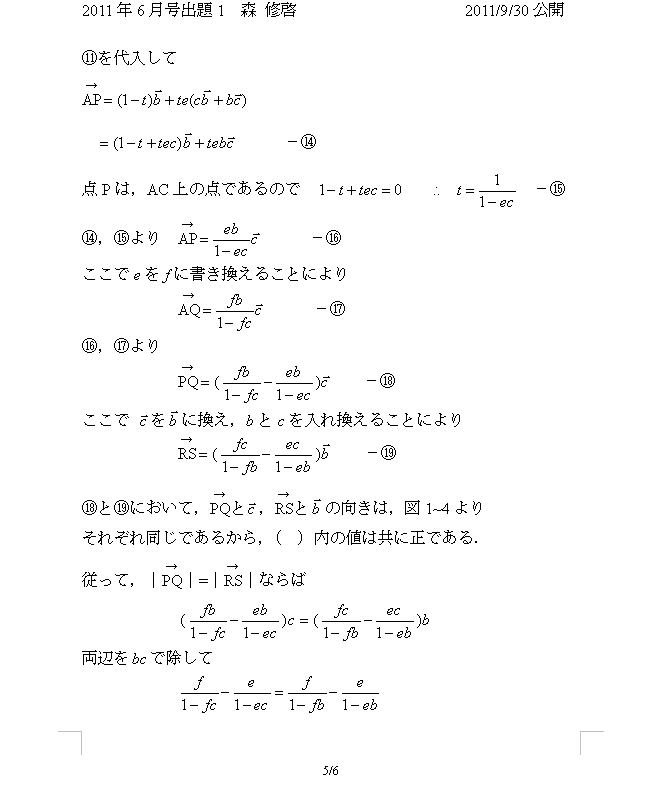 2011年6月号出題1 森 修啓 2011/9/30公開
⑪を代入して
$\overrightarrow{AP}=(1-t)\vec{b}+te(c\vec{b}+b\vec{c})$
$=(1-t+tec)\vec{b}+teb\vec{c}$ －⑭
点Pは，AC上の点であるので $1-t+tec=0$ ∴ $t=\frac{1}{1-ec}$ －⑮
⑭，⑮より $\overrightarrow{AP}=\frac{eb}{1-ec}\vec{c}$ －⑯
ここで e を f に書き換えることにより
$\overrightarrow{AQ}=\frac{fb}{1-fc}\vec{c}$ －⑰
⑯，⑰より
$\overrightarrow{PQ}=(\frac{fb}{1-fc}-\frac{eb}{1-ec})\vec{c}$ －⑱
ここで $\vec{c}$ を $\vec{b}$ に換え，b と c を入れ換えることにより
$\overrightarrow{RS}=(\frac{fc}{1-fb}-\frac{ec}{1-eb})\vec{b}$ －⑲
⑱と⑲において，$\overrightarrow{PQ}$と$\vec{c}$，$\overrightarrow{RS}$と$\vec{b}$の向きは，図1~4より
それぞれ同じであるから，（ ）内の値は共に正である．
従って，｜$\overrightarrow{PQ}$｜=｜$\overrightarrow{RS}$｜ならば
$(\frac{fb}{1-fc}-\frac{eb}{1-ec})c=(\frac{fc}{1-fb}-\frac{ec}{1-eb})b$
両辺を bc で除して
$\frac{f}{1-fc}-\frac{e}{1-ec}=\frac{f}{1-fb}-\frac{e}{1-eb}$
5/6